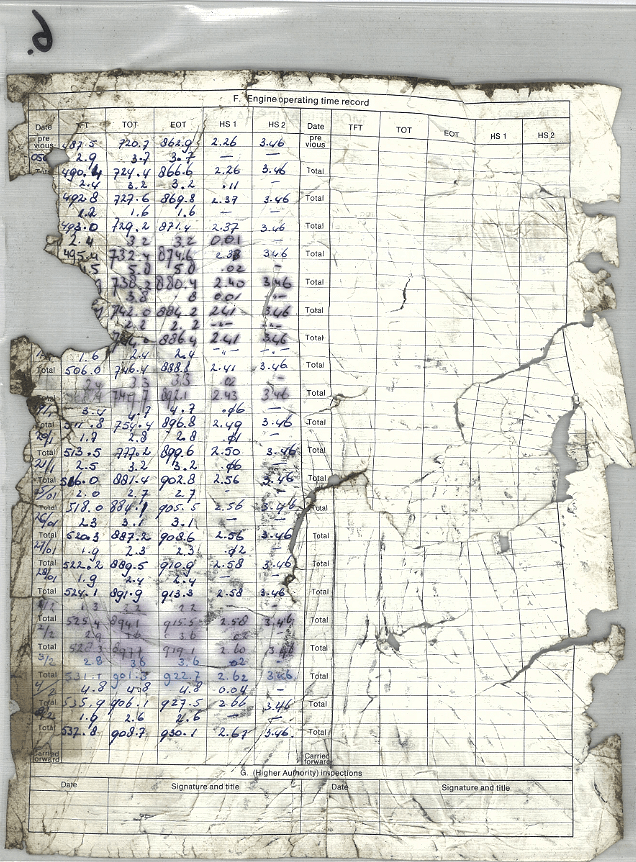 6.
F. Engine operating time record
Date TFT TOT EOT HS 1 HS 2 Date TFT TOT EOT HS 1 HS 2
pre vious 487.5 720.7 862.9 2.26 3.46 pre vious
2.9 3.7 3.7 — —
490.4 724.4 866.6 2.26 3.46 Total
2.4 3.2 3.2 .11 —
492.8 727.6 869.8 2.37 3.46 Total
1.6 1.6 — —
493.0 729.2 871.4 2.37 3.46 Total
2.4 3.2 3.2 0.01 —
495.4 732.4 874.6 3.46 Total
5.0 .02 —
880.4 2.40 3.46 Total
3.8 0.01
742.0 884.2 2.41 3.46 Total
2.2 2.2
886.4 2.41 3.46 Total
1.6 2.4 2.4 — —
Total 506.0 746.4 888.8 2.41 3.46 Total
3.3 3.3 .02 —
2.43 3.46 Total
3.4 4.7 4.7 .06 —
Total 754.4 896.8 2.49 3.46 Total
2.8 2.8 —
Total 513.5 777.2 899.6 2.50 3.46 Total
2.5 3.2 3.2 .06 —
Total 516.0 881.4 902.8 2.56 3.46 Total
2.0 2.7 2.7
Total 518.0 884.1 905.5 2.56 3.46 Total
2.3 3.1 3.1 — —
Total 520.3 887.2 908.6 2.56 3.46 Total
27/01 1.9 2.3 2.3 —
Total 522.2 889.5 910.9 2.58 3.46 Total
28/01 1.9 2.4 2.4
Total 524.1 891.9 913.3 2.58 3.46 Total
1.3 2.2 2.2
Total 525.4 894.1 915.5 2.58 3.46 Total
2/2 3.6 3.6 .02
Total 919.1 2.60 3.46 Total
3/2 2.8 3.6 3.6 .02 —
Total 531.1 901.3 922.7 2.62 3.46 Total
4/2 4.8 4.8 4.8 0.04 —
Total 535.9 906.1 927.5 2.66 3.46 Total
2.6 2.6 — —
Total 908.7 930.1 2.67 3.46 Total
Carried forward Carried forward
G. (Higher Authority) inspections
Date Signature and title Date Signature and title